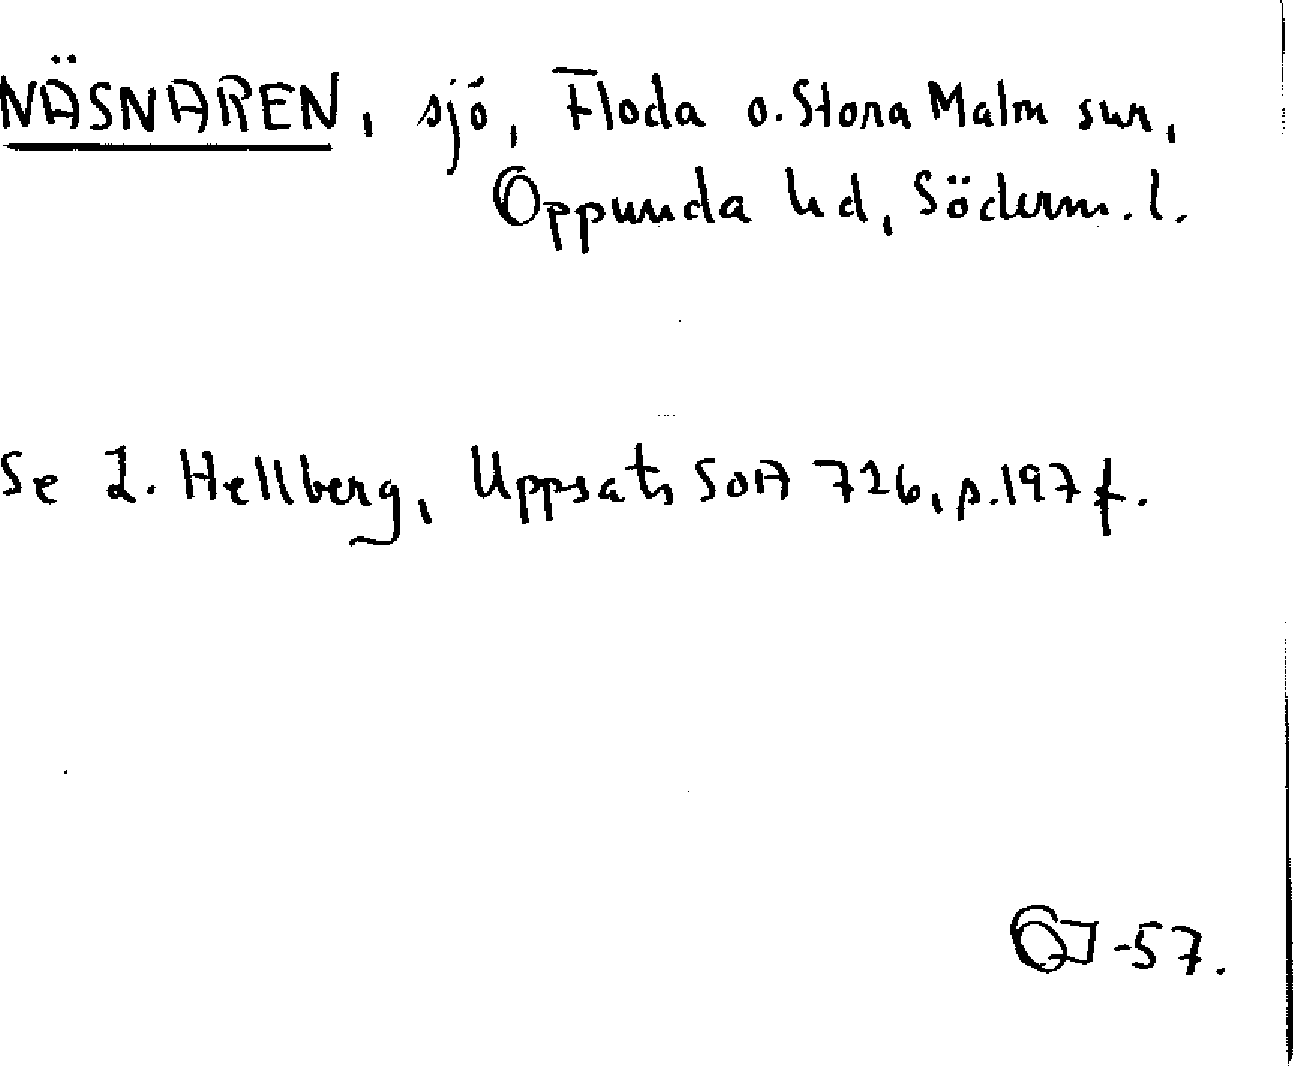 NÄSNAREN, sjö, Floda o. Stora Malm snr,
Oppunda hd, Söderm. l.
Se L. Hellberg, Uppsats SOA 726, s. 197 f.
-57.